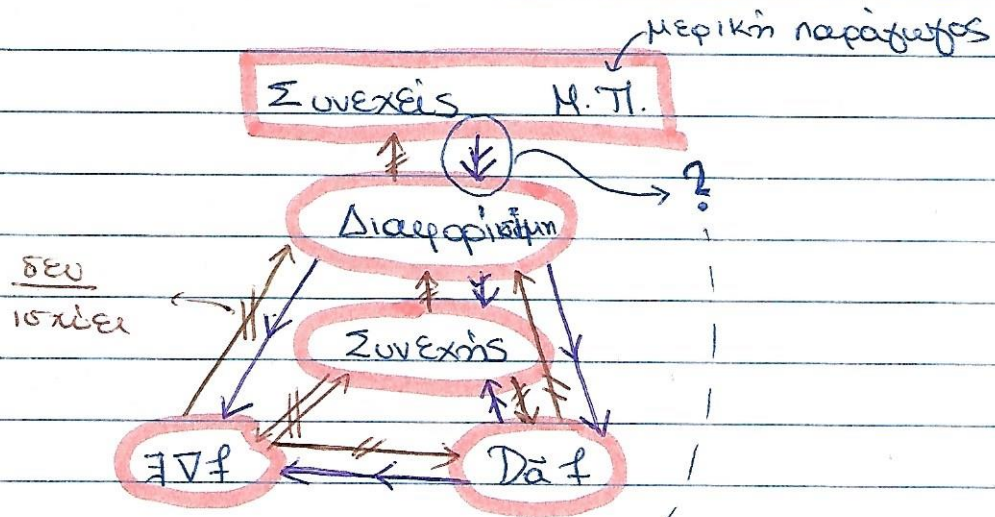 μερική παράγωγος
Συνεχείς Μ.Π.
?
Διαφορίσιμη
δεν
ισχύει
Συνεχής
∃∇f Dā f